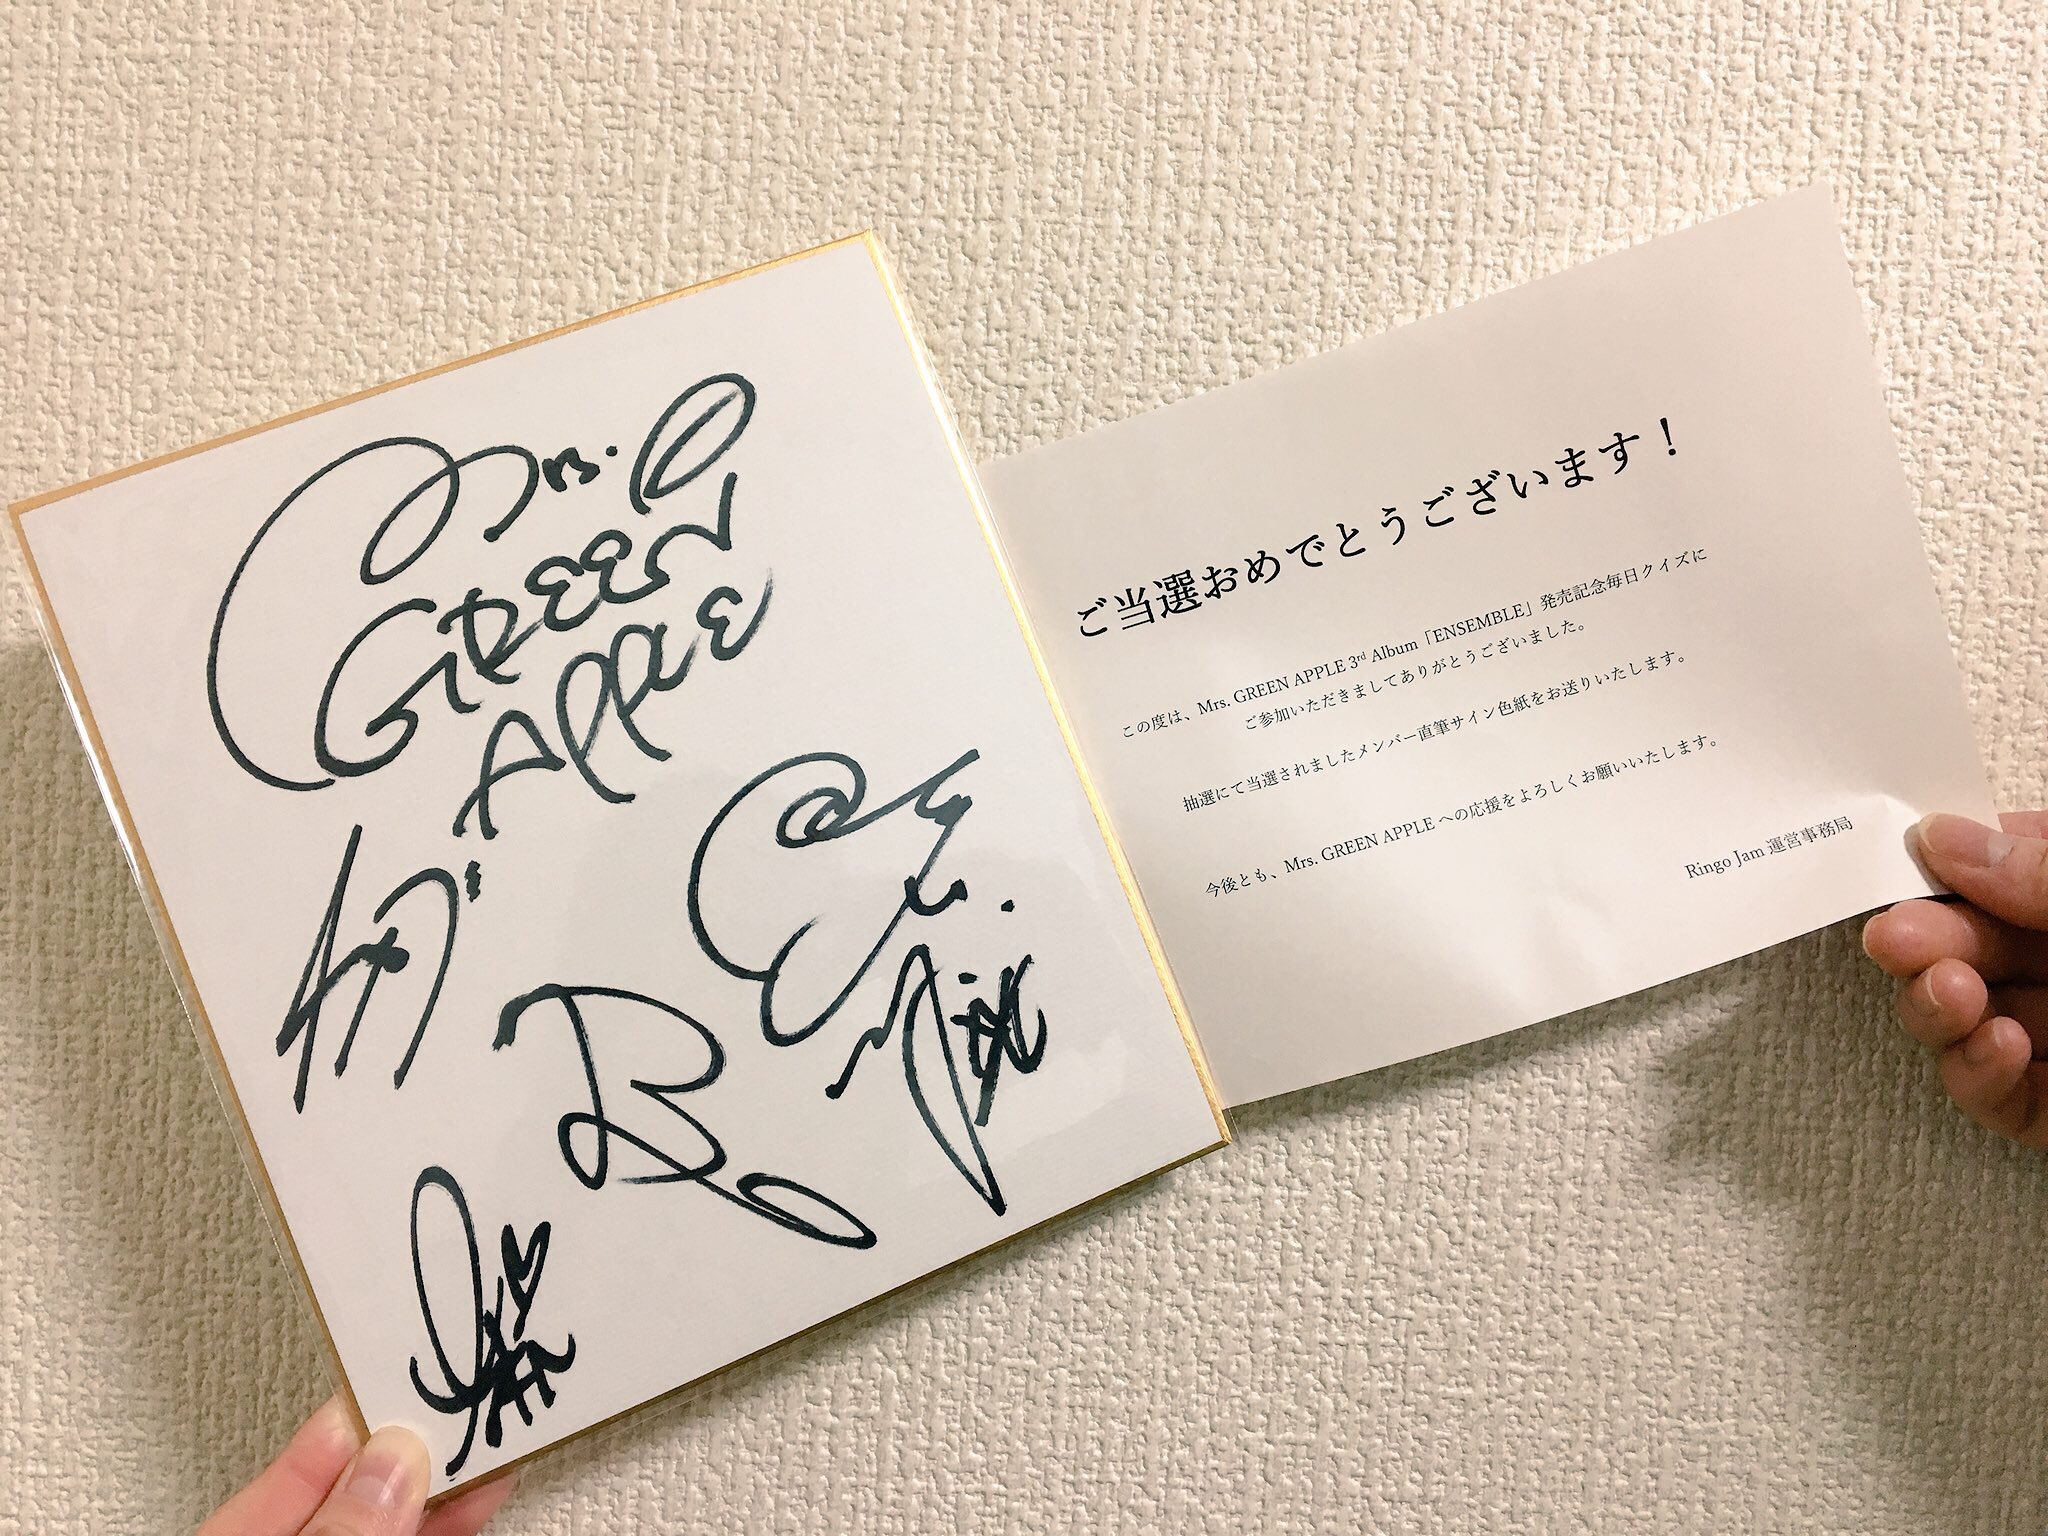 Mrs.
GREEN
APPLE
ご当選おめでとうございます！
この度は、Mrs. GREEN APPLE 3rd Album「ENSEMBLE」発売記念毎日クイズに
ご参加いただきましてありがとうございました。
抽選にて当選されましたメンバー直筆サイン色紙をお送りいたします。
今後とも、Mrs. GREEN APPLE への応援をよろしくお願いいたします。
Ringo Jam 運営事務局